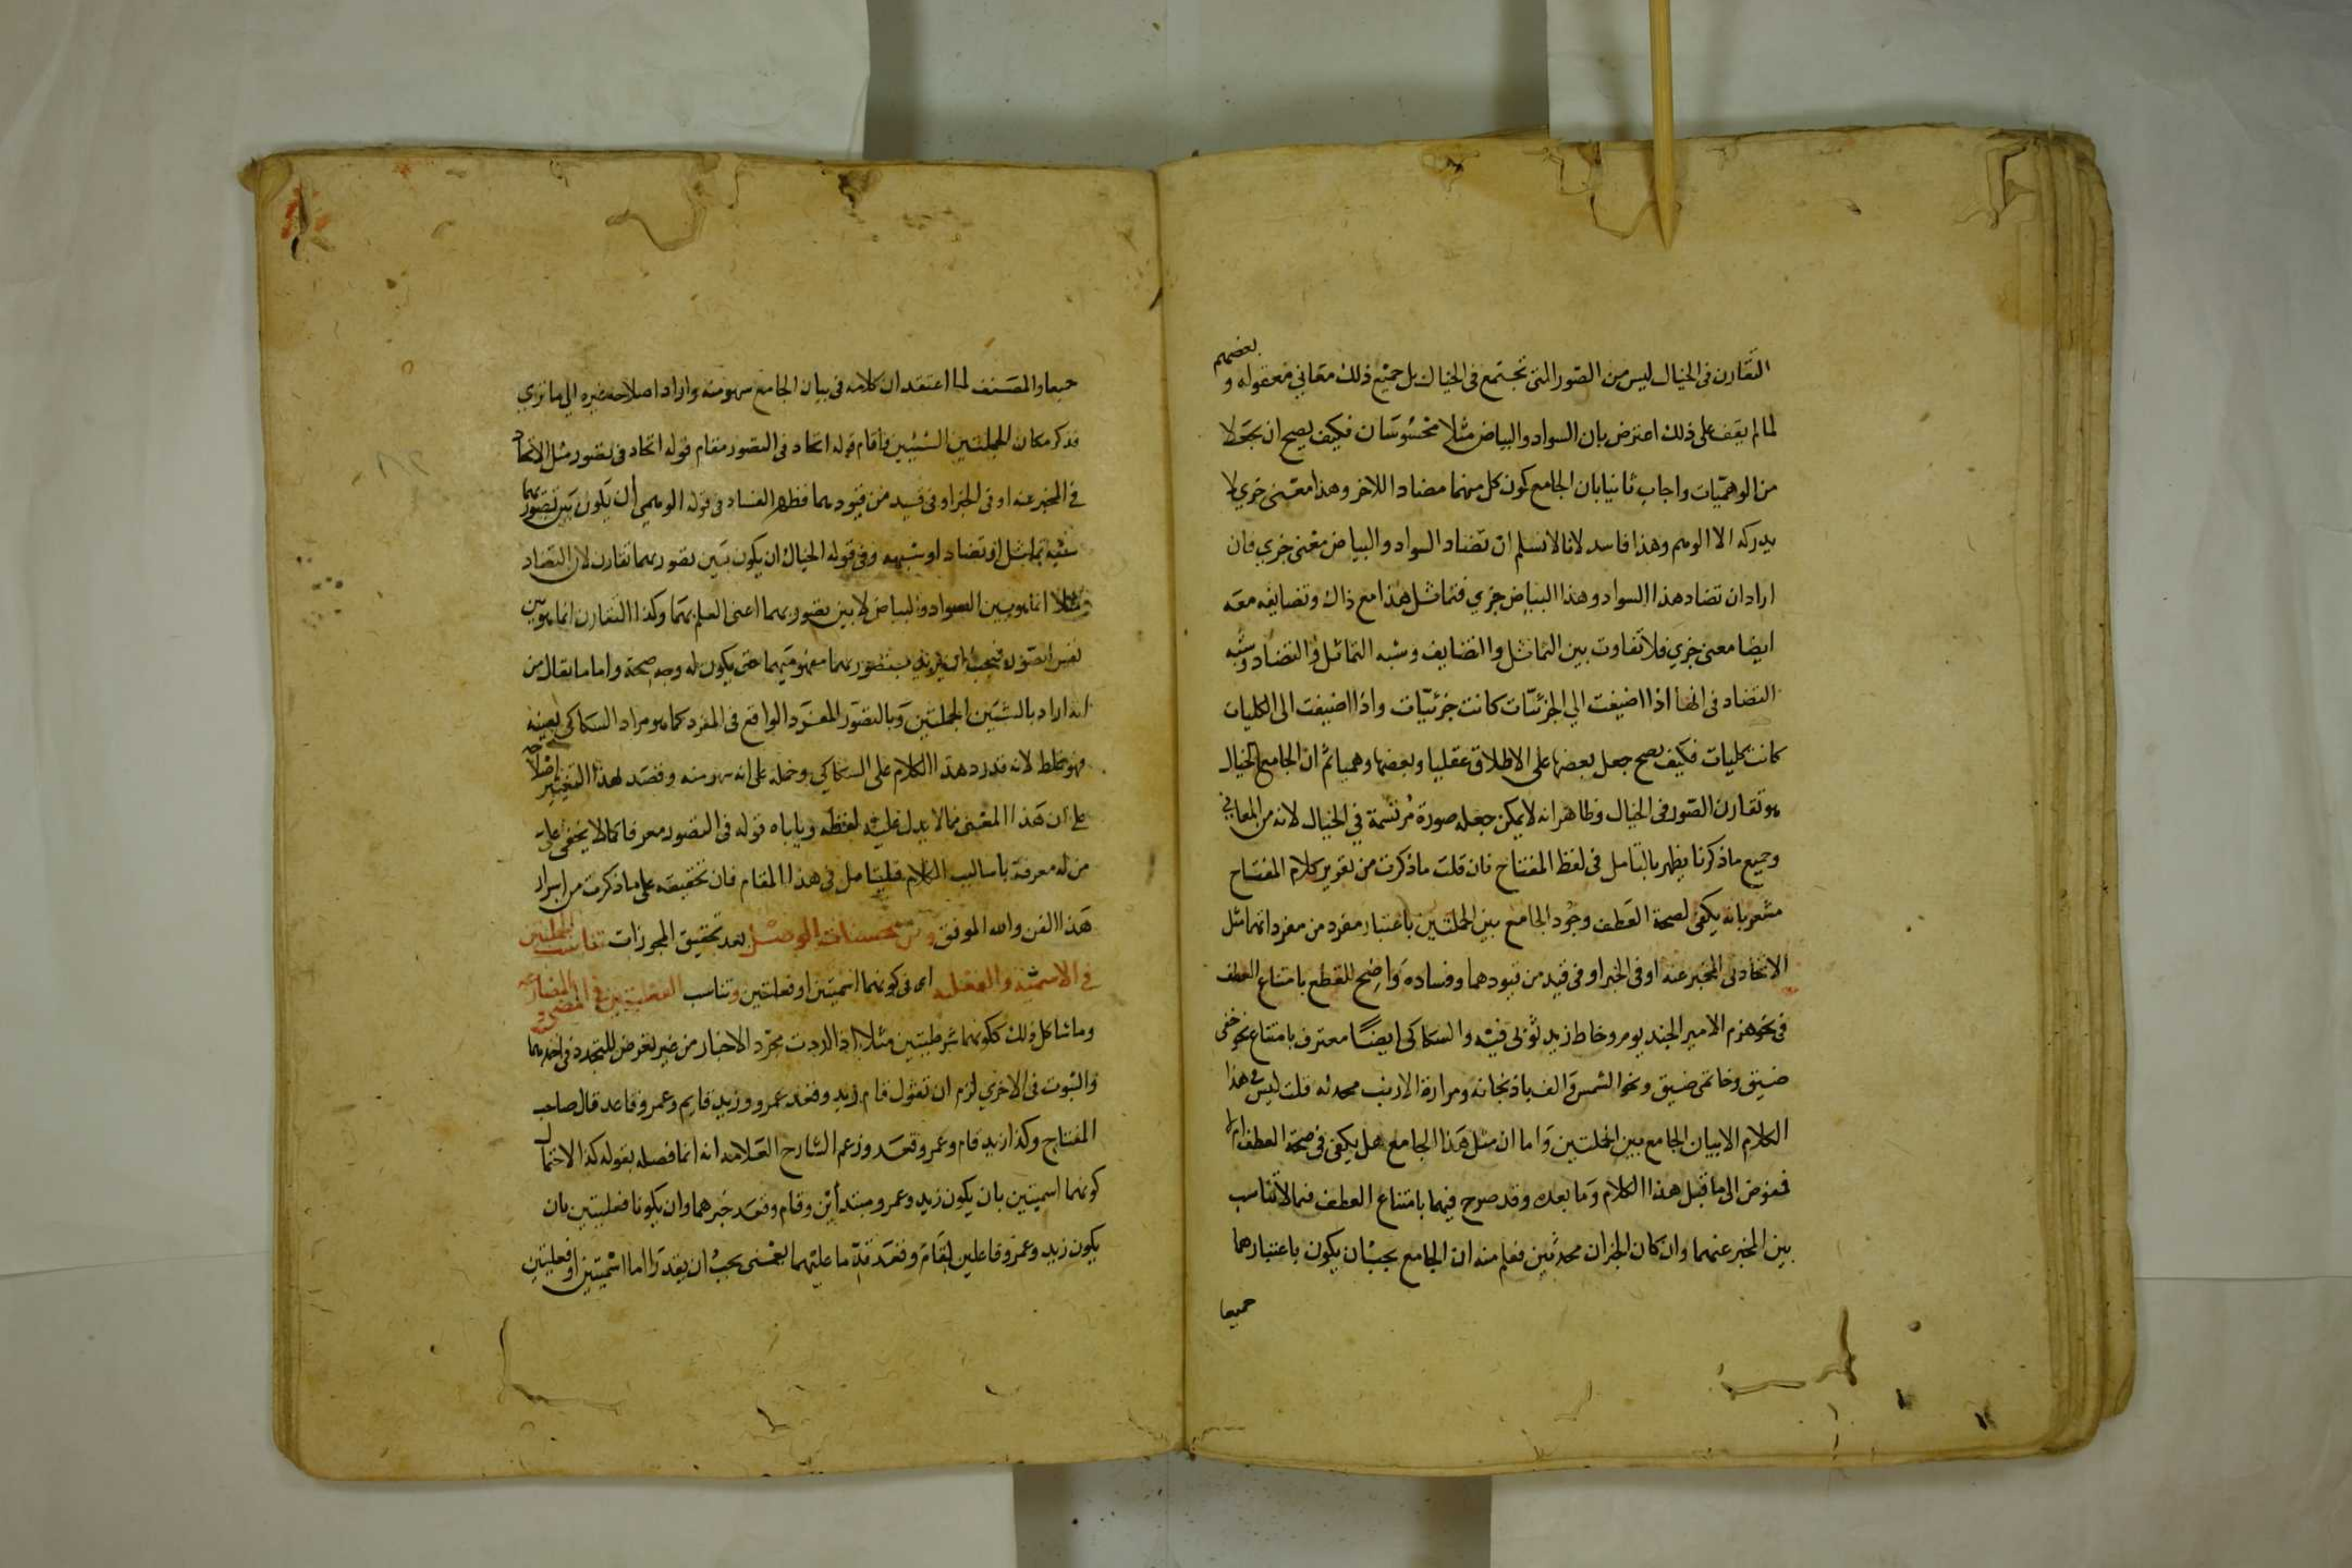 التقارن في الخيال ليس من الصور التي تجتمع في الخيال بل جميع ذلك معاني معقولة و بعضهم
لما لم يقف على ذلك اعترض بان السواد والبياض مثلا محسوسان فكيف يصح ان يجعلا
من الوهميات واجاب ثانيا بان الجامع كون كل منهما مضادا للاخر وهذا معنى جزي لا
يدركه الا الوهم وهذا فاسد لانا لا نسلم ان تضاد السواد والبياض معنى جزي فان
اراد ان تضاد هذا السواد وهذا البياض جزي فتماثل هذا مع ذاك وتضايفه معه
ايضا معنى جزي فلا تفاوت بين التماثل والتضايف وشبه التماثل والتضاد وشبه
التضاد في انها اذا اضيفت الي الجزئيات كانت جزئيات واذا اضيفت الى الكليات
كانت كليات فكيف يصح جعل بعضها على الاطلاق عقليا وبعضها وهميا ثم ان الجامع الخيالي
هو تقارن الصور في الخيال وظاهر انه لا يمكن جعله صورة مرتسمة في الخيال لانه من المعاني
وجميع ما ذكرنا يظهر بالتامل في لفظ المفتاح فان قلت ما ذكرت من تقرير كلام المفتاح
مشعر بانه يكفي لصحة العطف وجود الجامع بين الجملتين باعتبار مفرد من مفرداتهما مثل
الاتحاد في المخبر عنه او في الخبر او في قيد من قيودهما وفساده واضح للقطع بامتناع العطف
في نحو هزم الامير الجند يوم وخاط زيد ثوبي فيه والسكاكي ايضا معترف بامتناع نحو خفي
ضيق وخاتمي ضيق ونحو الشمس والف باذنجانة ومرارة الارنب محدثه قلت ليس في هذا
الكلام الا بيان الجامع بين الجملتين واما ان مثل هذا الجامع هل يكفي في صحة العطف ام لا
فمفوض الى ما قبل هذا الكلام وما بعده وقد صرح فيهما بامتناع العطف فيما لا تناسب
بين المخبر عنهما وان كان الخبران محدثين فعلم منه ان الجامع يجب ان يكون باعتبارهما
جميعا
جميعا والمصنف لما اعتقد ان كلامه في بيان الجامع سهو منه واراد اصلاحه غيره الي ما تري
فذكر مكان الجملتين الشيئين واقام قوله اتحاد في التصور مقام قوله اتحاد في تصور مثل الاتحاد
في المخبر عنه او في الخبر او في قيد من قيودهما فظهر الفساد في قوله الوهمي ان يكون بين تصوريهما
شبه تماثل او تضاد او شبهه وفي قوله الخيالي ان يكون بين تصوريهما تقارن لان التضاد
مثلا انما هو بين السواد والبياض لا بين تصوريهما اعني العلم بهما وكذا التقارن انما هو بين
نفس الصور فيجب ان يريد بتصوريهما مفهوميهما حتى يكون له وجه صحة واما ما يقال من
انه اراد بالشيئين الجملتين وبالتصور المفرد الواقع في المفرد كما هو مراد السكاكي بعينه
فهو غلط لانه قد رد هذا الكلام على السكاكي وحمله على انه سهو منه وقصد لهذا التغيير اصلاحه
على ان هذا المعنى مما لا يدل عليه لفظه وياباه قوله في التصور معرفا كما لا يخفى على
من له معرفة باساليب الكلام فليتامل في هذا المقام فان تحقيقه على ما ذكرت من اسرار
هذا الفن والله الموفق ومن محسنات الوصل بعد تحقيق المجوزات تناسب الجملتين
في الاسمية والفعلية اي في كونهما اسميتين او فعليتين وتناسب الفعليتين في المضي والمضارعة
وما شاكل ذلك ككونهما شرطيتين مثلا اذا اردت مجرد الاخبار من غير تعرض للتجدد في احديهما
والثبوت في الاخري لزم ان تقول قام زيد وقعد عمرو وزيد قايم وعمرو قاعد قال صاحب
المفتاح وكذا زيد قام وعمرو قعد وزعم الشارح العلامه انه انما فصله بقوله كذا لاحتمال
كونهما اسميتين بان يكون زيد وعمرو مبتدأين وقام وقعد خبرهما وان يكونا فعليتين بان
يكون زيد وعمرو فاعلين لقام وقعد قدّما عليهما بمعنى يجب ان يقدرا اما اسميتين او فعليتين